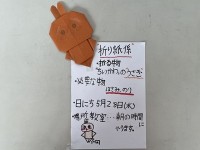 折り紙係
・折る物
ちいかわ、のうさぎ
・必要な物
はさみ、のり
・日にち5月28日(水)
・場所教室…朝の時間に
やります。